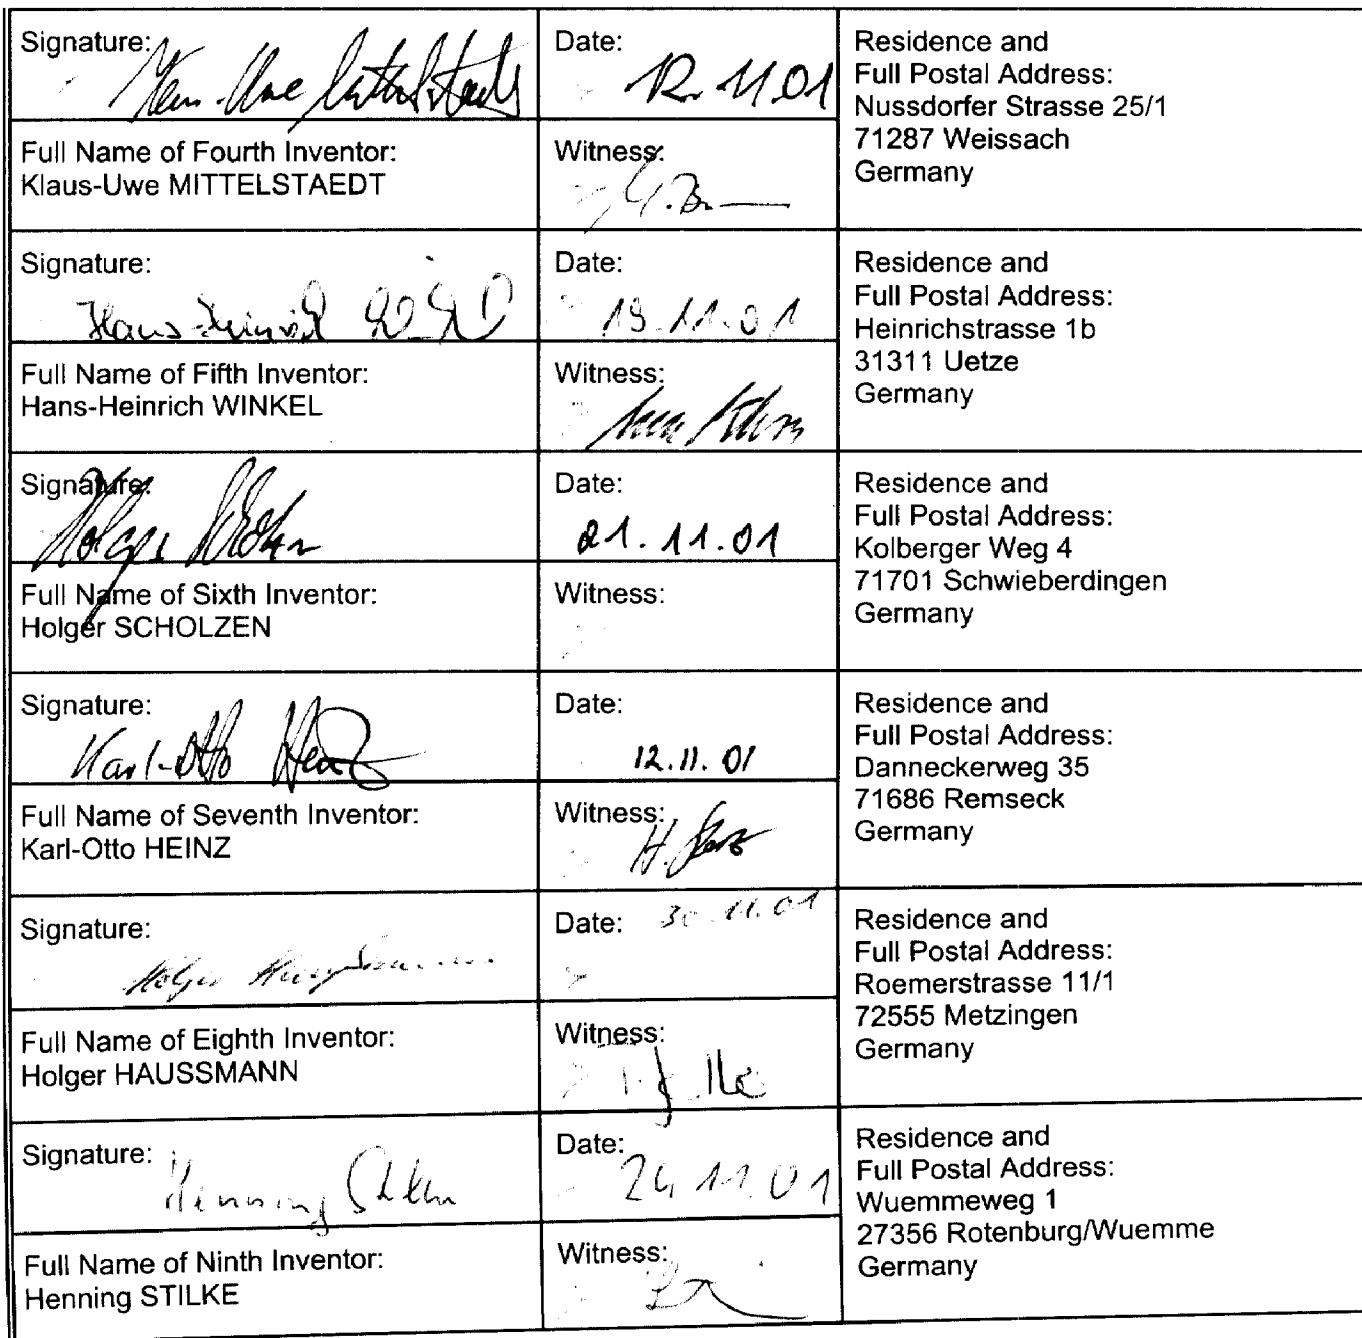 Signature:
Klaus-Uwe Mittelstaedt
Date:
12.11.01
Residence and
Full Postal Address:
Nussdorfer Strasse 25/1
71287 Weissach
Germany
Full Name of Fourth Inventor:
Klaus-Uwe MITTELSTAEDT
Witness:
Signature:
Hans-Heinrich
Date:
19.11.01
Residence and
Full Postal Address:
Heinrichstrasse 1b
31311 Uetze
Germany
Full Name of Fifth Inventor:
Hans-Heinrich WINKEL
Witness:
Signature:
Holger
Date:
21.11.01
Residence and
Full Postal Address:
Kolberger Weg 4
71701 Schwieberdingen
Germany
Full Name of Sixth Inventor:
Holger SCHOLZEN
Witness:
Signature:
Karl-Otto Heinz
Date:
12.11.01
Residence and
Full Postal Address:
Danneckerweg 35
71686 Remseck
Germany
Full Name of Seventh Inventor:
Karl-Otto HEINZ
Witness:
H.
Signature:
Holger Haussmann
Date: 30.11.01
Residence and
Full Postal Address:
Roemerstrasse 11/1
72555 Metzingen
Germany
Full Name of Eighth Inventor:
Holger HAUSSMANN
Witness:
Signature:
Henning Stilke
Date:
24.11.01
Residence and
Full Postal Address:
Wuemmeweg 1
27356 Rotenburg/Wuemme
Germany
Full Name of Ninth Inventor:
Henning STILKE
Witness: